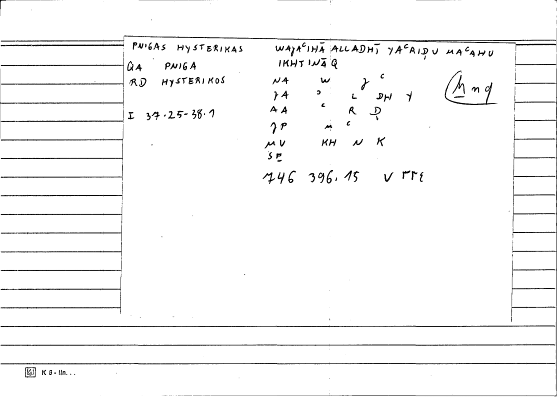 PNIGAS HYSTERIKAS WAJAᶜIHĀ ALLADHĪ YAᶜRIḌU MAᶜAHU
QA PNIGA IKHTINĀQ
RD HYSTERIKOS NA W J ᶜ
JA ʾ L DH Y
I 37.25-38.1 AA ᶜ R Ḍ
JP M ᶜ
MV KH N K
SF
746 396.15 V ٣٣٤
K 8 - lin. . .